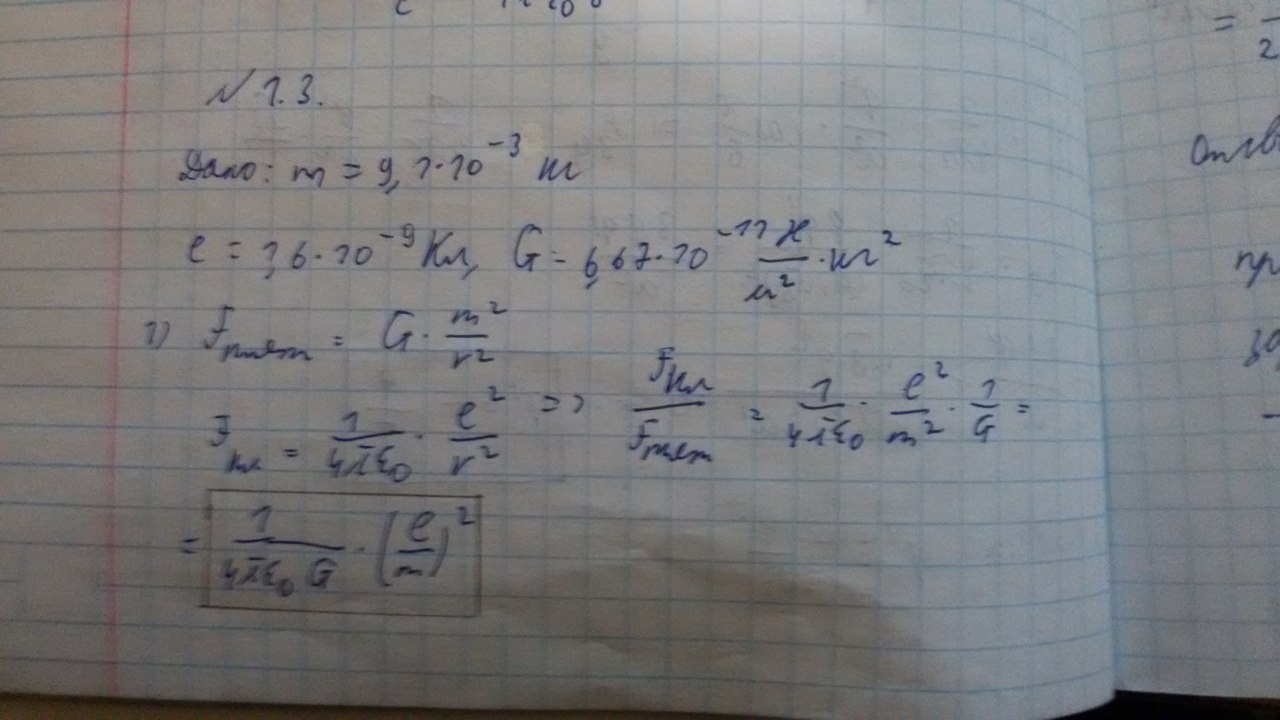 № 1.3.
Дано: m = 9,1·10⁻³ кг
e = 1,6·10⁻⁹ Кл, G = 6,67·10⁻¹¹ Н/м² · кг²
1) Fтят = G · m²/r²
Fкл = 1/4πε₀ · e²/r² => Fкл/Fтят = 1/4πε₀ · e²/m² · 1/G =
= 1/4πε₀G · (e/m)²